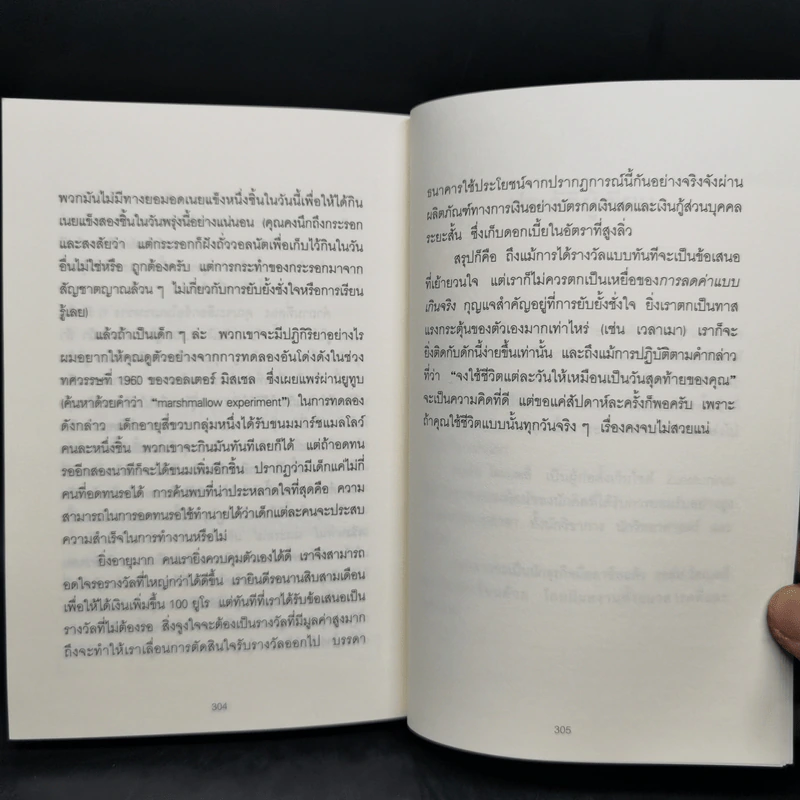 พวกมันไม่มีทางยอมอดเนยแข็งหนึ่งชิ้นในวันนี้เพื่อให้ได้กิน
เนยแข็งสองชิ้นในวันพรุ่งนี้อย่างแน่นอน (คุณคงนึกถึงกระรอก
และสงสัยว่า แต่กระรอกก็ฝังถั่ววอลนัตเพื่อเก็บไว้กินในวัน
อื่นไม่ใช่หรือ ถูกต้องครับ แต่การกระทำของกระรอกมาจาก
สัญชาตญาณล้วน ๆ ไม่เกี่ยวกับการยับยั้งชั่งใจหรือการเรียน
รู้เลย)
แล้วถ้าเป็นเด็ก ๆ ล่ะ พวกเขาจะมีปฏิกิริยาอย่างไร
ผมอยากให้คุณดูตัวอย่างจากการทดลองอันโด่งดังในช่วง
ทศวรรษที่ 1960 ของวอลเตอร์ มิสเชล ซึ่งเผยแพร่ผ่านยูทูบ
(ค้นหาด้วยคำว่า “marshmallow experiment”) ในการทดลอง
ดังกล่าว เด็กอายุสี่ขวบกลุ่มหนึ่งได้รับขนมมาร์ชแมลโลว์
คนละหนึ่งชิ้น พวกเขาจะกินมันทันทีเลยก็ได้ แต่ถ้าอดทน
รออีกสองนาทีก็จะได้ขนมเพิ่มอีกชิ้น ปรากฏว่ามีเด็กแค่ไม่กี่
คนที่อดทนรอได้ การค้นพบที่น่าประหลาดใจที่สุดคือ ความ
สามารถในการอดทนรอใช้ทำนายได้ว่าเด็กแต่ละคนจะประสบ
ความสำเร็จในการทำงานหรือไม่
ยิ่งอายุมาก คนเรายิ่งควบคุมตัวเองได้ดี เราจึงสามารถ
อดใจรอรางวัลที่ใหญ่กว่าได้ดีขึ้น เรายินดีรอนานสิบสามเดือน
เพื่อให้ได้เงินเพิ่มขึ้น 100 ยูโร แต่ทันทีที่เราได้รับข้อเสนอเป็น
รางวัลที่ไม่ต้องรอ สิ่งจูงใจจะต้องเป็นรางวัลที่มีมูลค่าสูงมาก
ถึงจะทำให้เราเลื่อนการตัดสินใจรับรางวัลออกไป บรรดา
304
ธนาคารใช้ประโยชน์จากปรากฏการณ์นี้กันอย่างจริงจังผ่าน
ผลิตภัณฑ์ทางการเงินอย่างบัตรกดเงินสดและเงินกู้ส่วนบุคคล
ระยะสั้น ซึ่งเก็บดอกเบี้ยในอัตราที่สูงลิ่ว
สรุปก็คือ ถึงแม้การได้รางวัลแบบทันทีจะเป็นข้อเสนอ
ที่เย้ายวนใจ แต่เราก็ไม่ควรตกเป็นเหยื่อของการลดค่าแบบ
เกินจริง กุญแจสำคัญอยู่ที่การยับยั้งชั่งใจ ยิ่งเราตกเป็นทาส
แรงกระตุ้นของตัวเองมากเท่าไหร่ (เช่น เวลาเมา) เราก็จะ
ยิ่งติดกับดักนี้ง่ายขึ้นเท่านั้น และถึงแม้การปฏิบัติตามคำกล่าว
ที่ว่า “จงใช้ชีวิตแต่ละวันให้เหมือนเป็นวันสุดท้ายของคุณ”
จะเป็นความคิดที่ดี แต่ขอแค่สัปดาห์ละครั้งก็พอครับ เพราะ
ถ้าคุณใช้ชีวิตแบบนั้นทุกวันจริง ๆ เรื่องคงจบไม่สวยแน่
305